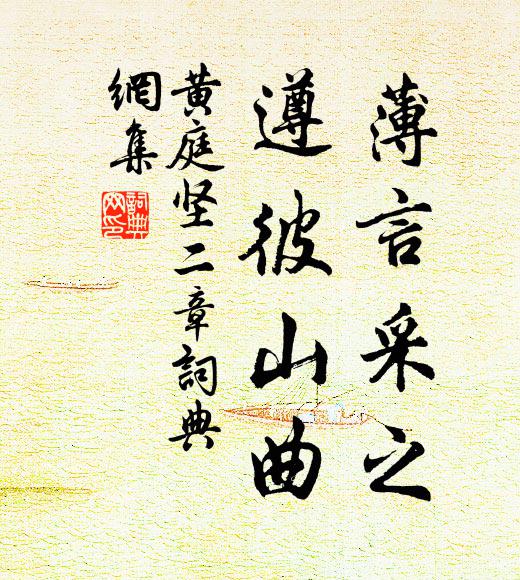 薄言采之
遵彼山曲
黄庭坚二章詞典
網集
詞典
网印